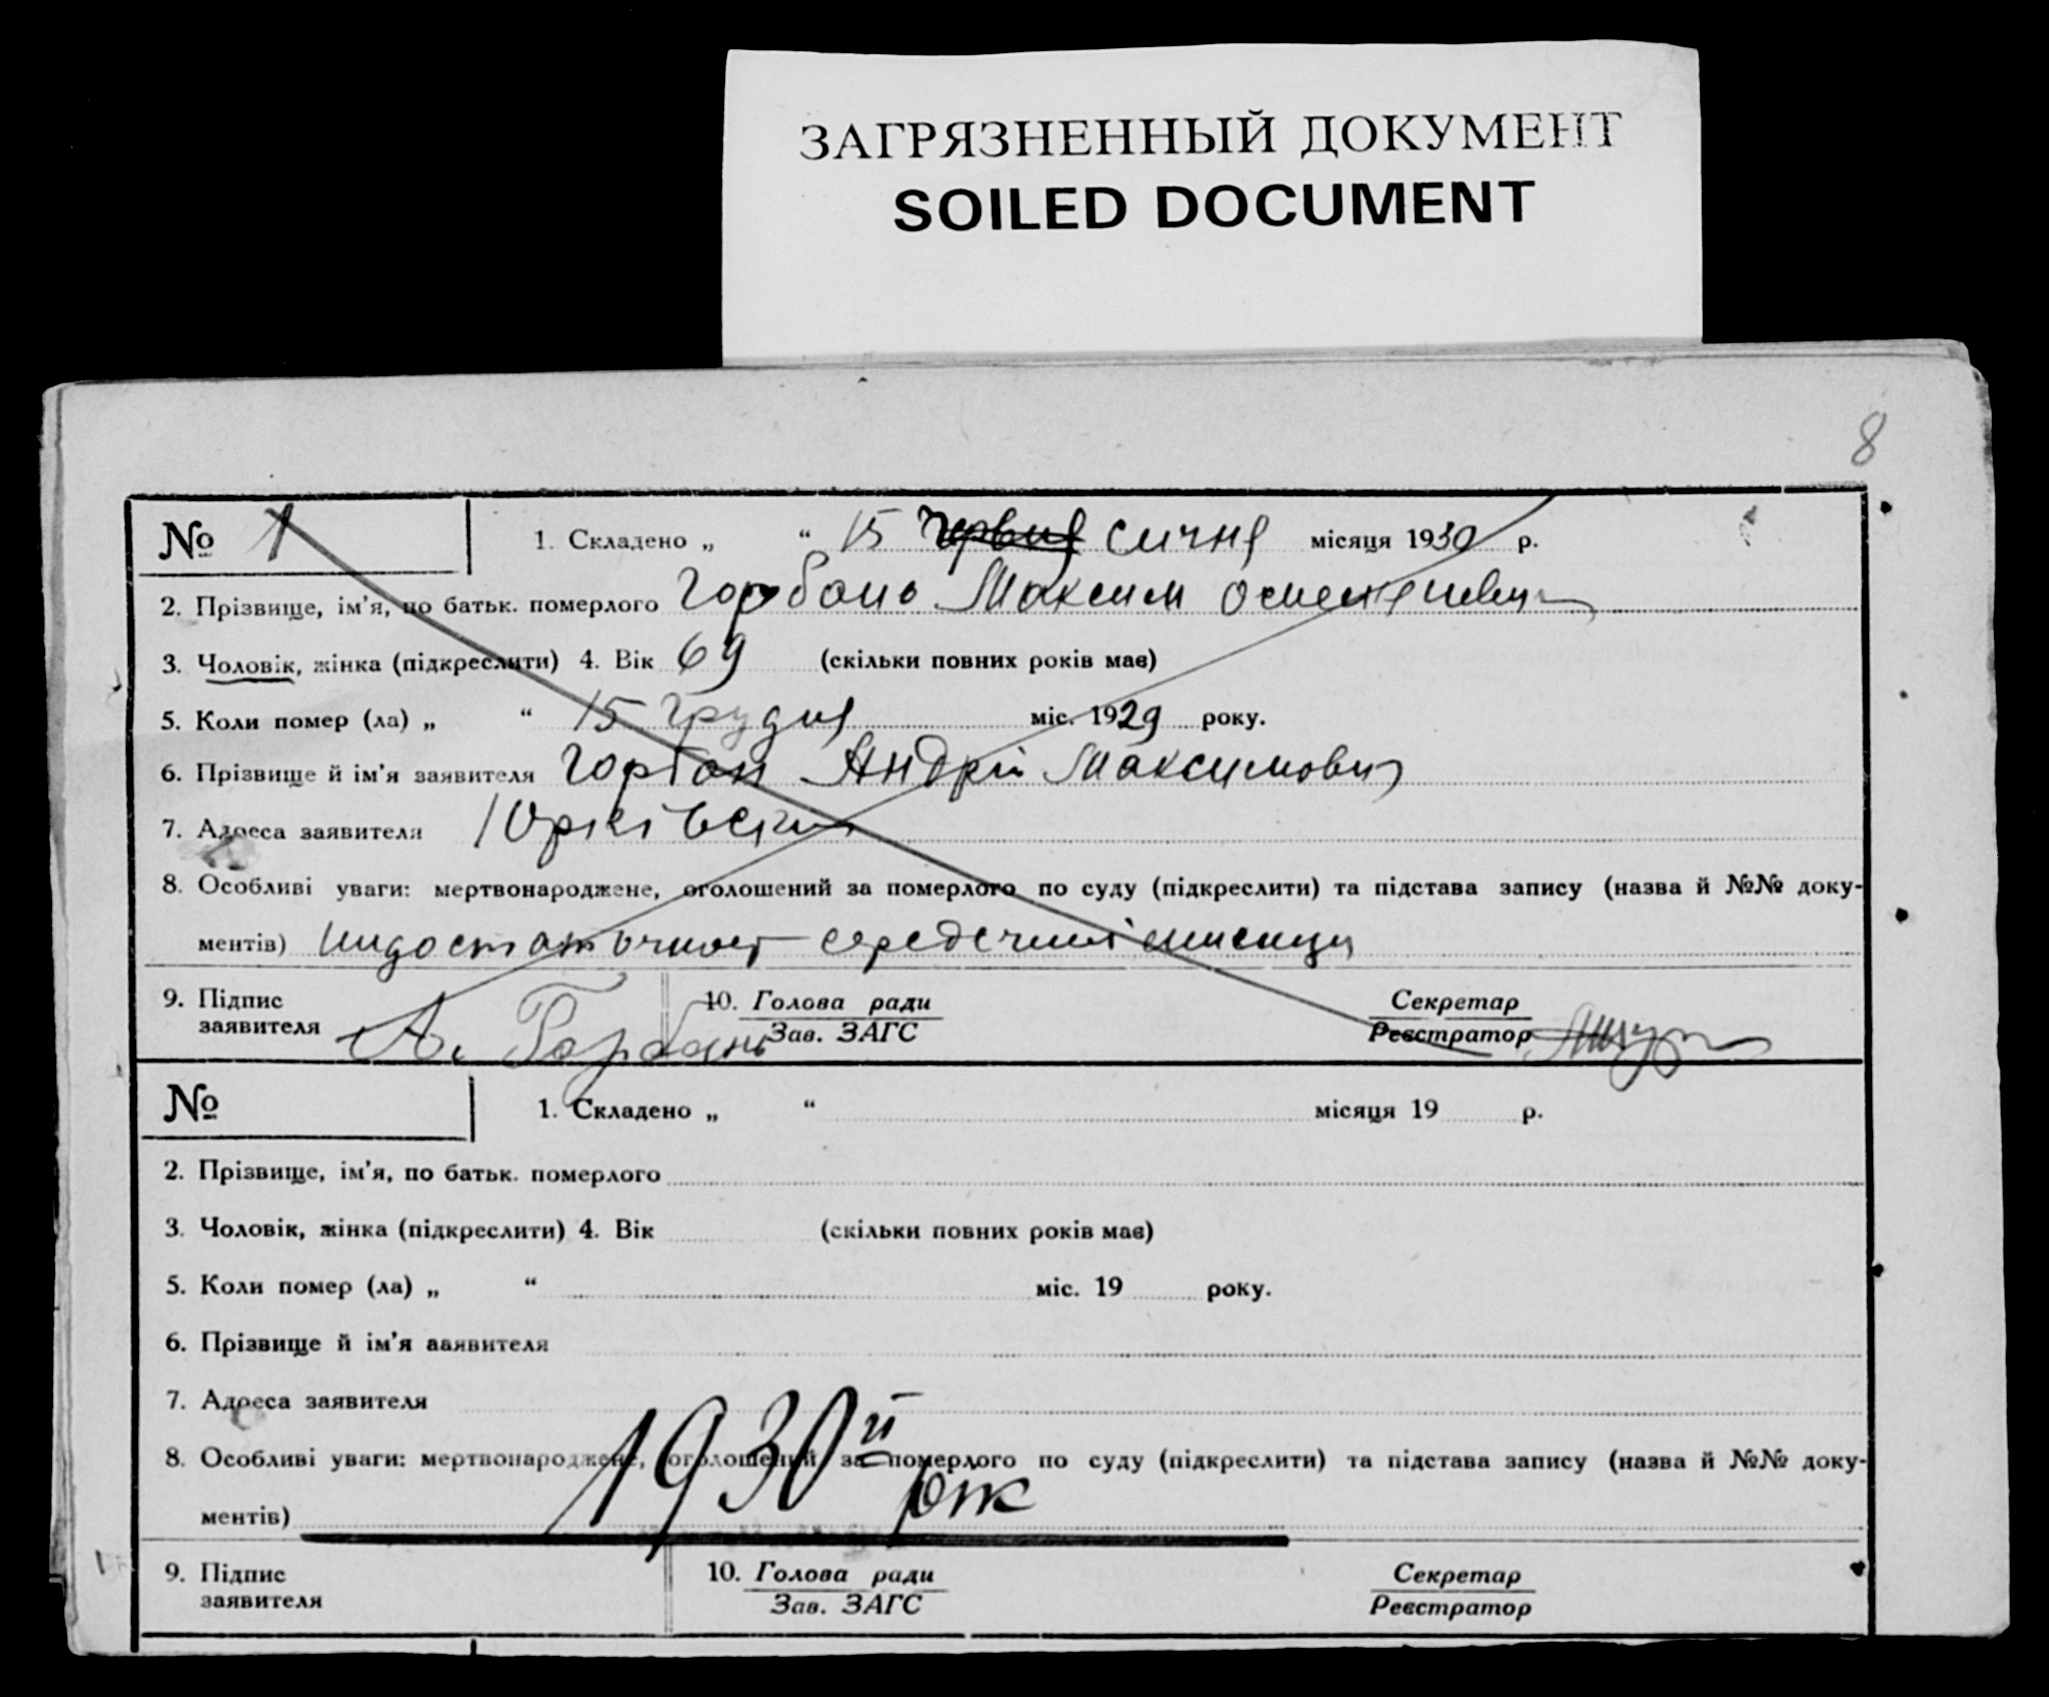 ЗАГРЯЗНЕННЫЙ ДОКУМЕНТ
SOILED DOCUMENT
8
№ 1 1. Складено „ “ 15 січня місяця 1930 р.
2. Прізвище, ім'я, по батьк. померлого Горбань Максим
3. Чоловік, жінка (підкреслити) 4. Вік 69 (скільки повних років має)
5. Коли помер (ла) „ “ 15 грудня міс. 1929 року.
6. Прізвище й ім'я заявителя Горбан Андрій Максимович
7. Адреса заявителя
8. Особливі уваги: мертвонароджене, оголошений за померлого по суду (підкреслити) та підстава запису (назва й №№ доку-
ментів)
9. Підпис 10. Голова ради Секретар
заявителя А. Горбань Зав. ЗАГС Реєстратор
№ 1. Складено „ “ місяця 19 р.
2. Прізвище, ім'я, по батьк. померлого
3. Чоловік, жінка (підкреслити) 4. Вік (скільки повних років має)
5. Коли помер (ла) „ “ міс. 19 року.
6. Прізвище й ім'я заявителя
7. Адреса заявителя
8. Особливі уваги: мертвонароджене, оголошений за померлого по суду (підкреслити) та підстава запису (назва й №№ доку-
1930й рік
ментів)
9. Підпис 10. Голова ради Секретар
заявителя Зав. ЗАГС Реєстратор